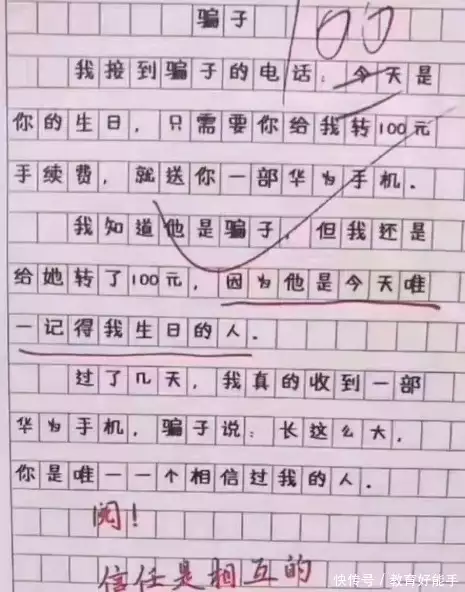 骗子 100
我接到骗子的电话：今天是
你的生日，只需要你给我转100元
手续费，就送你一部华为手机．
我知道他是骗子，但我还是
给她转了100元，因为他是今天唯
一记得我生日的人．
过了几天，我真的收到一部
华为手机，骗子说：长这么大，
你是唯一一个相信过我的人．
阅！
信任是相互的
快传号/教育好能手